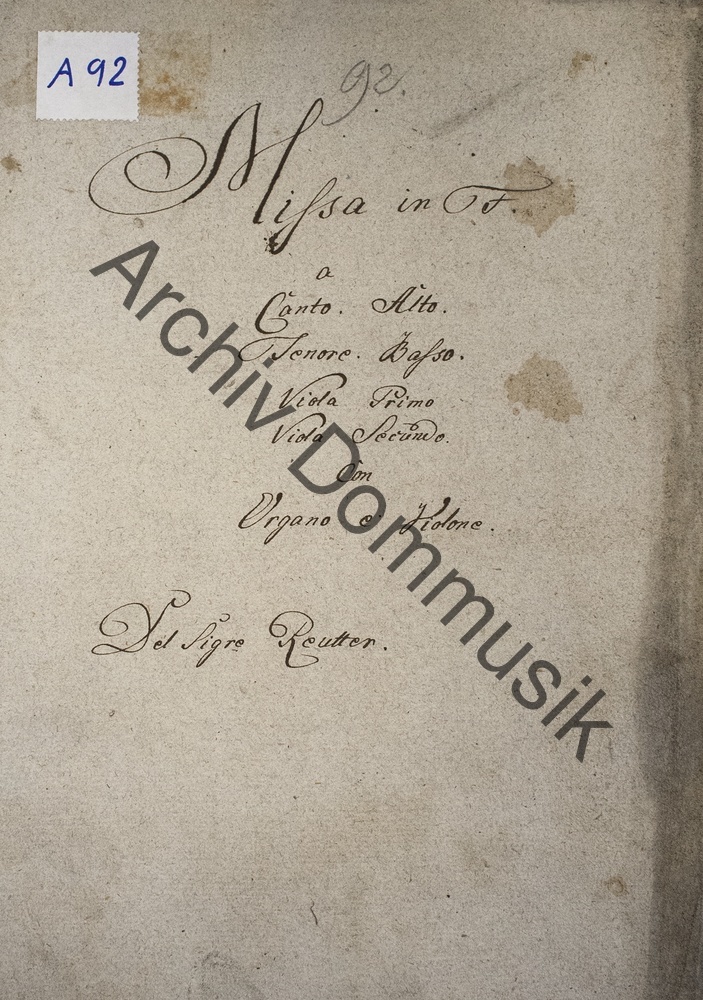 A 92
92.
Missa in F.
a
Canto. Alto.
Tenore. Basso.
Viola Primo
Viola Secundo.
Con
Organo e Violone.
Del Sigre Reutter.
Archiv Dommusik